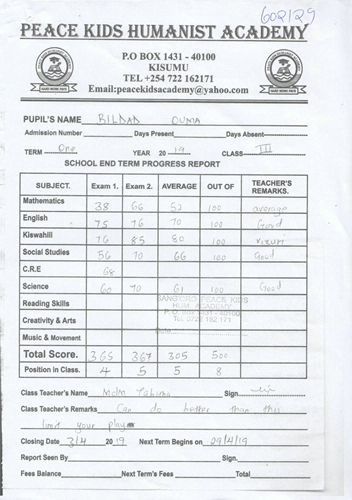 602129
PEACE KIDS HUMANIST ACADEMY
P.O BOX 1431 - 40100
KISUMU
TEL +254 722 162171
Email:peacekidsacademy@yahoo.com
PUPIL'S NAME BILDAD OUMA
Admission Number Days Present Days Absent
TERM One YEAR 2019 CLASS III
SCHOOL END TERM PROGRESS REPORT
SUBJECT. Exam 1. Exam 2. AVERAGE OUT OF TEACHER'S REMARKS.
Mathematics 38 66 52 100 average
English 75 76 70 100 Good
Kiswahili 76 85 80 100 vizuri
Social Studies 56 70 66 100 Good
C.R.E 68
Science 60 70 61 100 Good
Reading Skills
Creativity & Arts
Music & Movement
PEACE KIDS
HUM. ACADEMY
Total Score. 365 367 305 500
Position in Class. 4 5 5 8
Class Teacher's Name Mdm Sign.
Class Teacher's Remarks Can do better than this
your play
Closing Date 3/4 2019 Next Term Begins on 29/4/19
Report Seen By Sign.
Fees Balance Next Term's Fees Total